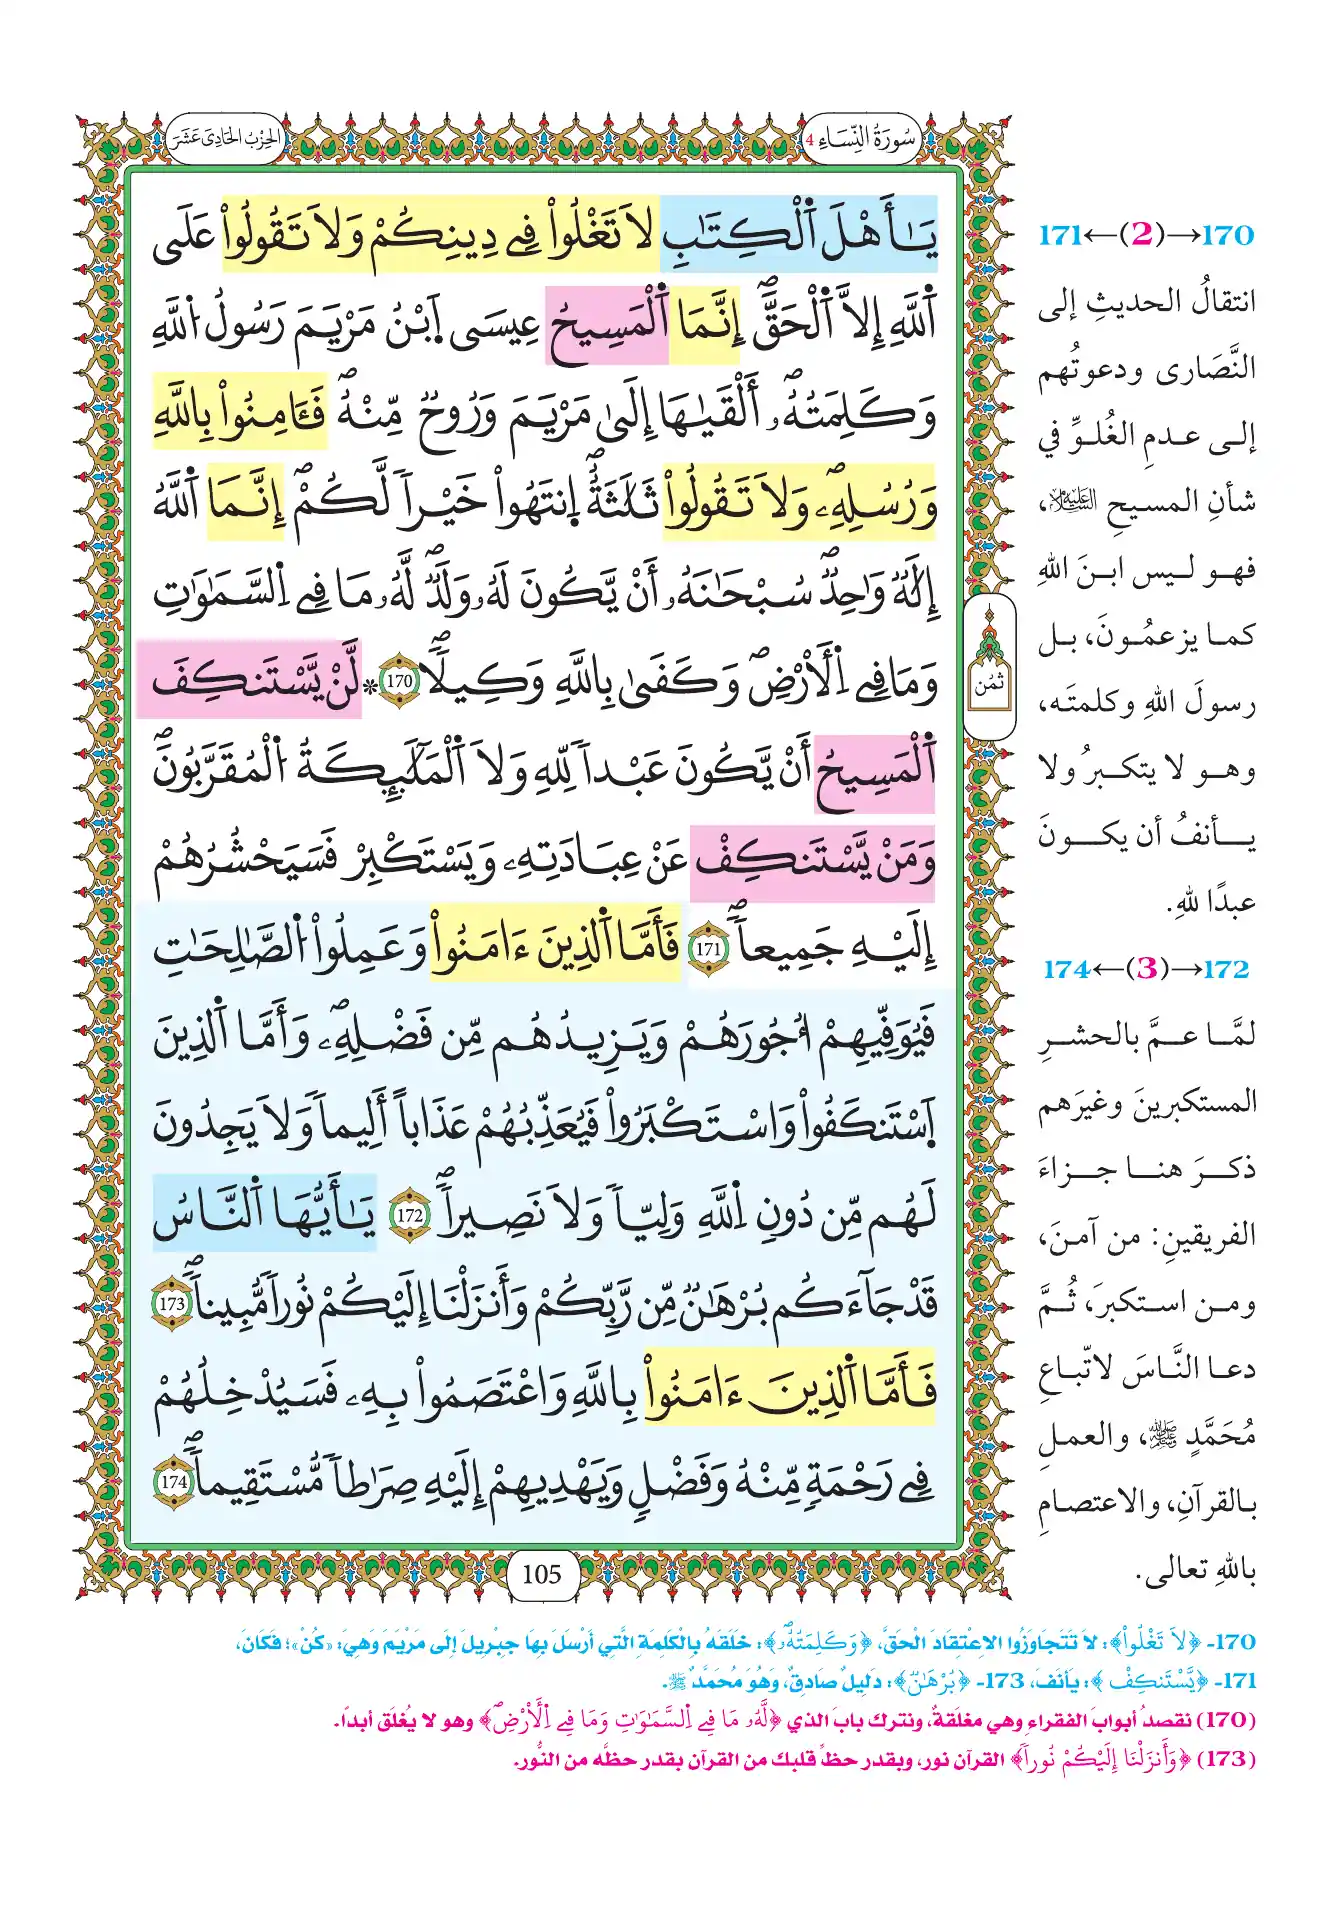 سُورَةُ النِّسَاءِ 4
الحِزْبُ الحَادِيَ عَشَرَ
يَٰٓأَهْلَ اَ۬لْكِتَٰبِ لَا تَغْلُواْ فِے دِينِكُمْ وَلَا تَقُولُواْ عَلَي
اَ۬للَّهِ إِلَّا اَ۬لْحَقَّۖ إِنَّمَا اَ۬لْمَسِيحُ عِيسَي اَ۪بْنُ مَرْيَمَ رَسُولُ اُ۬للَّهِ
وَكَلِمَتُهُۥٓۖ أَلْقَيٰهَآ إِلَيٰ مَرْيَمَ وَرُوحٞ مِّنْهُۖ فَـَٔامِنُواْ بِاللَّهِ
وَرُسُلِهِۦۖ وَلَا تَقُولُواْ ثَلَٰثَةٌۖ اِ۪نتَهُواْ خَيْراٗ لَّكُمْۖ إِنَّمَا اَ۬للَّهُ
إِلَٰهٞ وَٰحِدٞۖ سُبْحَٰنَهُۥٓ أَنْ يَّكُونَ لَهُۥ وَلَدٞۖ لَّهُۥ مَا فِے اِ۬لسَّمَٰوَٰتِ
وَمَا فِے اِ۬لْأَرْضِۖ وَكَفَيٰ بِاللَّهِ وَكِيلاٗۖ 170 * لَّنْ يَّسْتَنكِفَ
اَ۬لْمَسِيحُ أَنْ يَّكُونَ عَبْداٗ لِّلهِ وَلَا اَ۬لْمَلَٰٓئِكَةُ اُ۬لْمُقَرَّبُونَۖ
وَمَنْ يَّسْتَنكِفْ عَنْ عِبَادَتِهِۦ وَيَسْتَكْبِرْ فَسَيَحْشُرُهُمْ
إِلَيْهِ جَمِيعاٗۖ 171 فَأَمَّا اَ۬لذِينَ ءَامَنُواْ وَعَمِلُواْ اُ۬لصَّٰلِحَٰتِ
فَيُوَفِّيهِمْ أُجُورَهُمْ وَيَزِيدُهُم مِّن فَضْلِهِۦۖ وَأَمَّا اَ۬لذِينَ
اَ۪سْتَنكَفُواْ وَاسْتَكْبَرُواْ فَيُعَذِّبُهُمْ عَذَاباً أَلِيماٗ وَلَا يَجِدُونَ
لَهُم مِّن دُونِ اِ۬للَّهِ وَلِيّاٗ وَلَا نَصِيراٗۖ 172 يَٰٓأَيُّهَا اَ۬لنَّاسُ
قَدْ جَآءَكُم بُرْهَٰنٞ مِّن رَّبِّكُمْ وَأَنزَلْنَآ إِلَيْكُمْ نُوراٗ مُّبِيناٗۖ 173
فَأَمَّا اَ۬لذِينَ ءَامَنُواْ بِاللَّهِ وَاعْتَصَمُواْ بِهِۦ فَسَيُدْخِلُهُمْ
فِے رَحْمَةٖ مِّنْهُ وَفَضْلٖ وَيَهْدِيهِمْ إِلَيْهِ صِرَٰطاٗ مُّسْتَقِيماٗۖ 174
ثُمُن
105
170→(2)←171
انتقالُ الحديثِ إلى
النَّصَارى ودعوتُهم
إلى عدمِ الغُلوِّ في
شأنِ المسيحِ عليه السلام،
فهو ليس ابنَ اللهِ
كما يزعمُونَ، بل
رسولَ اللهِ وكلمتَه،
وهو لا يتكبرُ ولا
يأنفُ أن يكونَ
عبدًا للهِ.
172→(3)←174
لمَّا عمَّ بالحشرِ
المستكبرينَ وغيرَهم
ذكرَ هنا جزاءَ
الفريقينِ: من آمنَ،
ومن استكبرَ، ثُمَّ
دعا النَّاسَ لاتّباعِ
مُحَمَّدٍ ﷺ، والعملِ
بالقرآنِ، والاعتصامِ
باللهِ تعالى.
170- ﴿لَا تَغْلُواْ﴾: لا تَتَجاوَزُوا الاعْتِقادَ الْحَقَّ، ﴿وَكَلِمَتُهُۥٓۖ﴾: خَلَقَهُ بِالْكَلِمَةِ الَّتِي أرْسَلَ بِهَا جِبْرِيلَ إلَى مَرْيَمَ وَهِيَ: «كُنْ»؛ فَكَانَ،
171- ﴿يَّسْتَنكِفْ﴾: يأنَفَ، 173- ﴿بُرْهَٰنٞ﴾: دَلِيلٌ صَادِقٌ، وَهُوَ مُحَمَّدٌ ﷺ.
(170) نقصدُ أبوابَ الفقراءِ وهي مغلَقةٌ، ونترك بابَ الذي ﴿لَّهُۥ مَا فِے اِ۬لسَّمَٰوَٰتِ وَمَا فِے اِ۬لْأَرْضِۖ﴾ وهو لا يُغلَق أبداً.
(173) ﴿وَأَنزَلْنَآ إِلَيْكُمْ نُوراٗ﴾ القرآن نور، وبقدر حظِّ قلبك من القرآن بقدر حظَّه من النُّور.